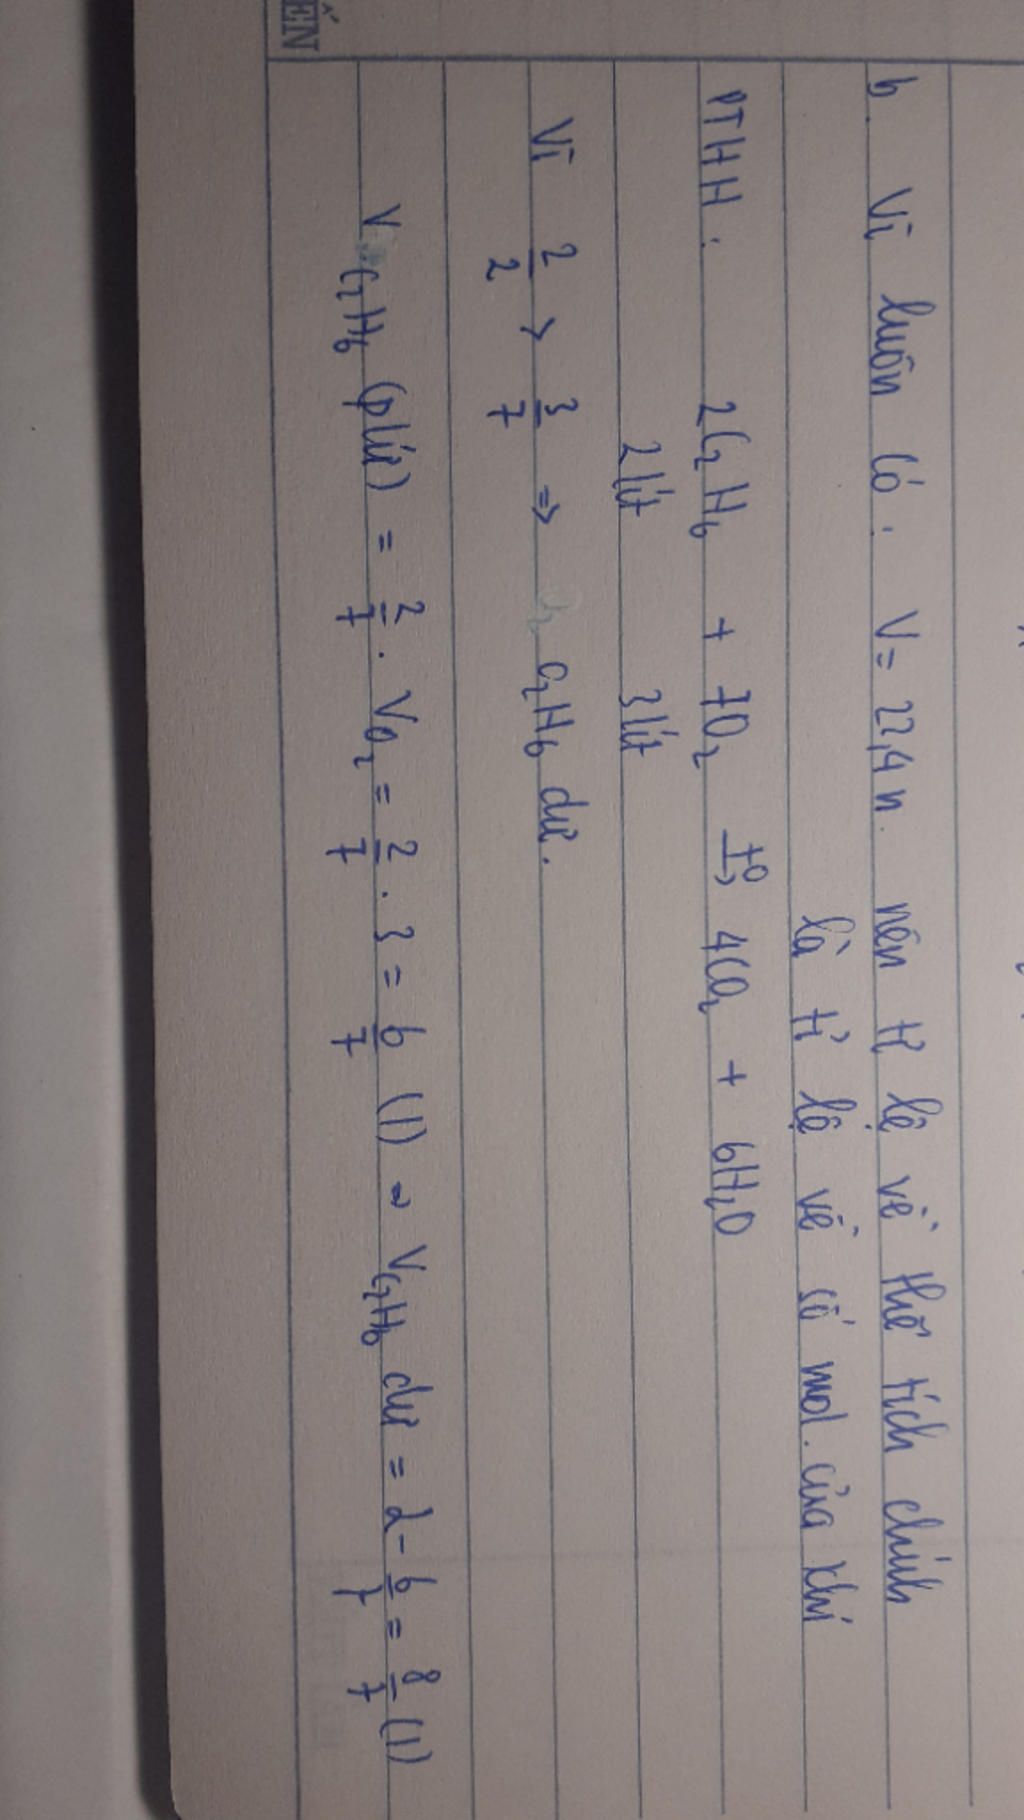 b. Vì luôn có: V = 22,4 n. nên tỉ lệ về thể tích chính
là tỉ lệ về số mol của khí
PTHH: 2C₂H₆ + 7O₂ t⁰→ 4CO₂ + 6H₂O
2 lít 3 lít
Vì 2/2 > 3/7 => C₂H₆ dư.
V C₂H₆ (pứ) = 2/7 . V O₂ = 2/7 . 3 = 6/7 (l) => V C₂H₆ dư = 2 - 6/7 = 8/7 (l)
ẾN